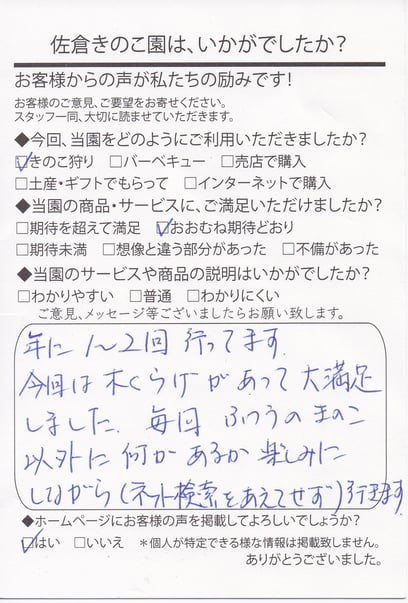 佐倉きのこ園は、いかがでしたか?
お客様からの声が私たちの励みです!
お客様のご意見、ご要望をお寄せください。
スタッフ一同、大切に読ませていただきます。
◆今回、当園をどのようにご利用いただきましたか?
☑きのこ狩り □バーベキュー □売店で購入
□土産・ギフトでもらって □インターネットで購入
◆当園の商品・サービスに、ご満足いただけましたか?
□期待を超えて満足 ☑おおむね期待どおり
□期待未満 □想像と違う部分があった □不備があった
◆当園のサービスや商品の説明はいかがでしたか?
□わかりやすい □普通 □わかりにくい
ご意見、メッセージ等ございましたらお願い致します。
年に1~2回行ってます.
今回は木くらげがあって大満足
しました. 毎回 ふつうのきのこ
以外に何かあるか楽しみに
しながら(ネット検索をあえてせず)行きます
◆ホームページにお客様の声を掲載してよろしいでしょうか?
☑はい □いいえ *個人が特定できる様な情報は掲載致しません。
ありがとうございました。